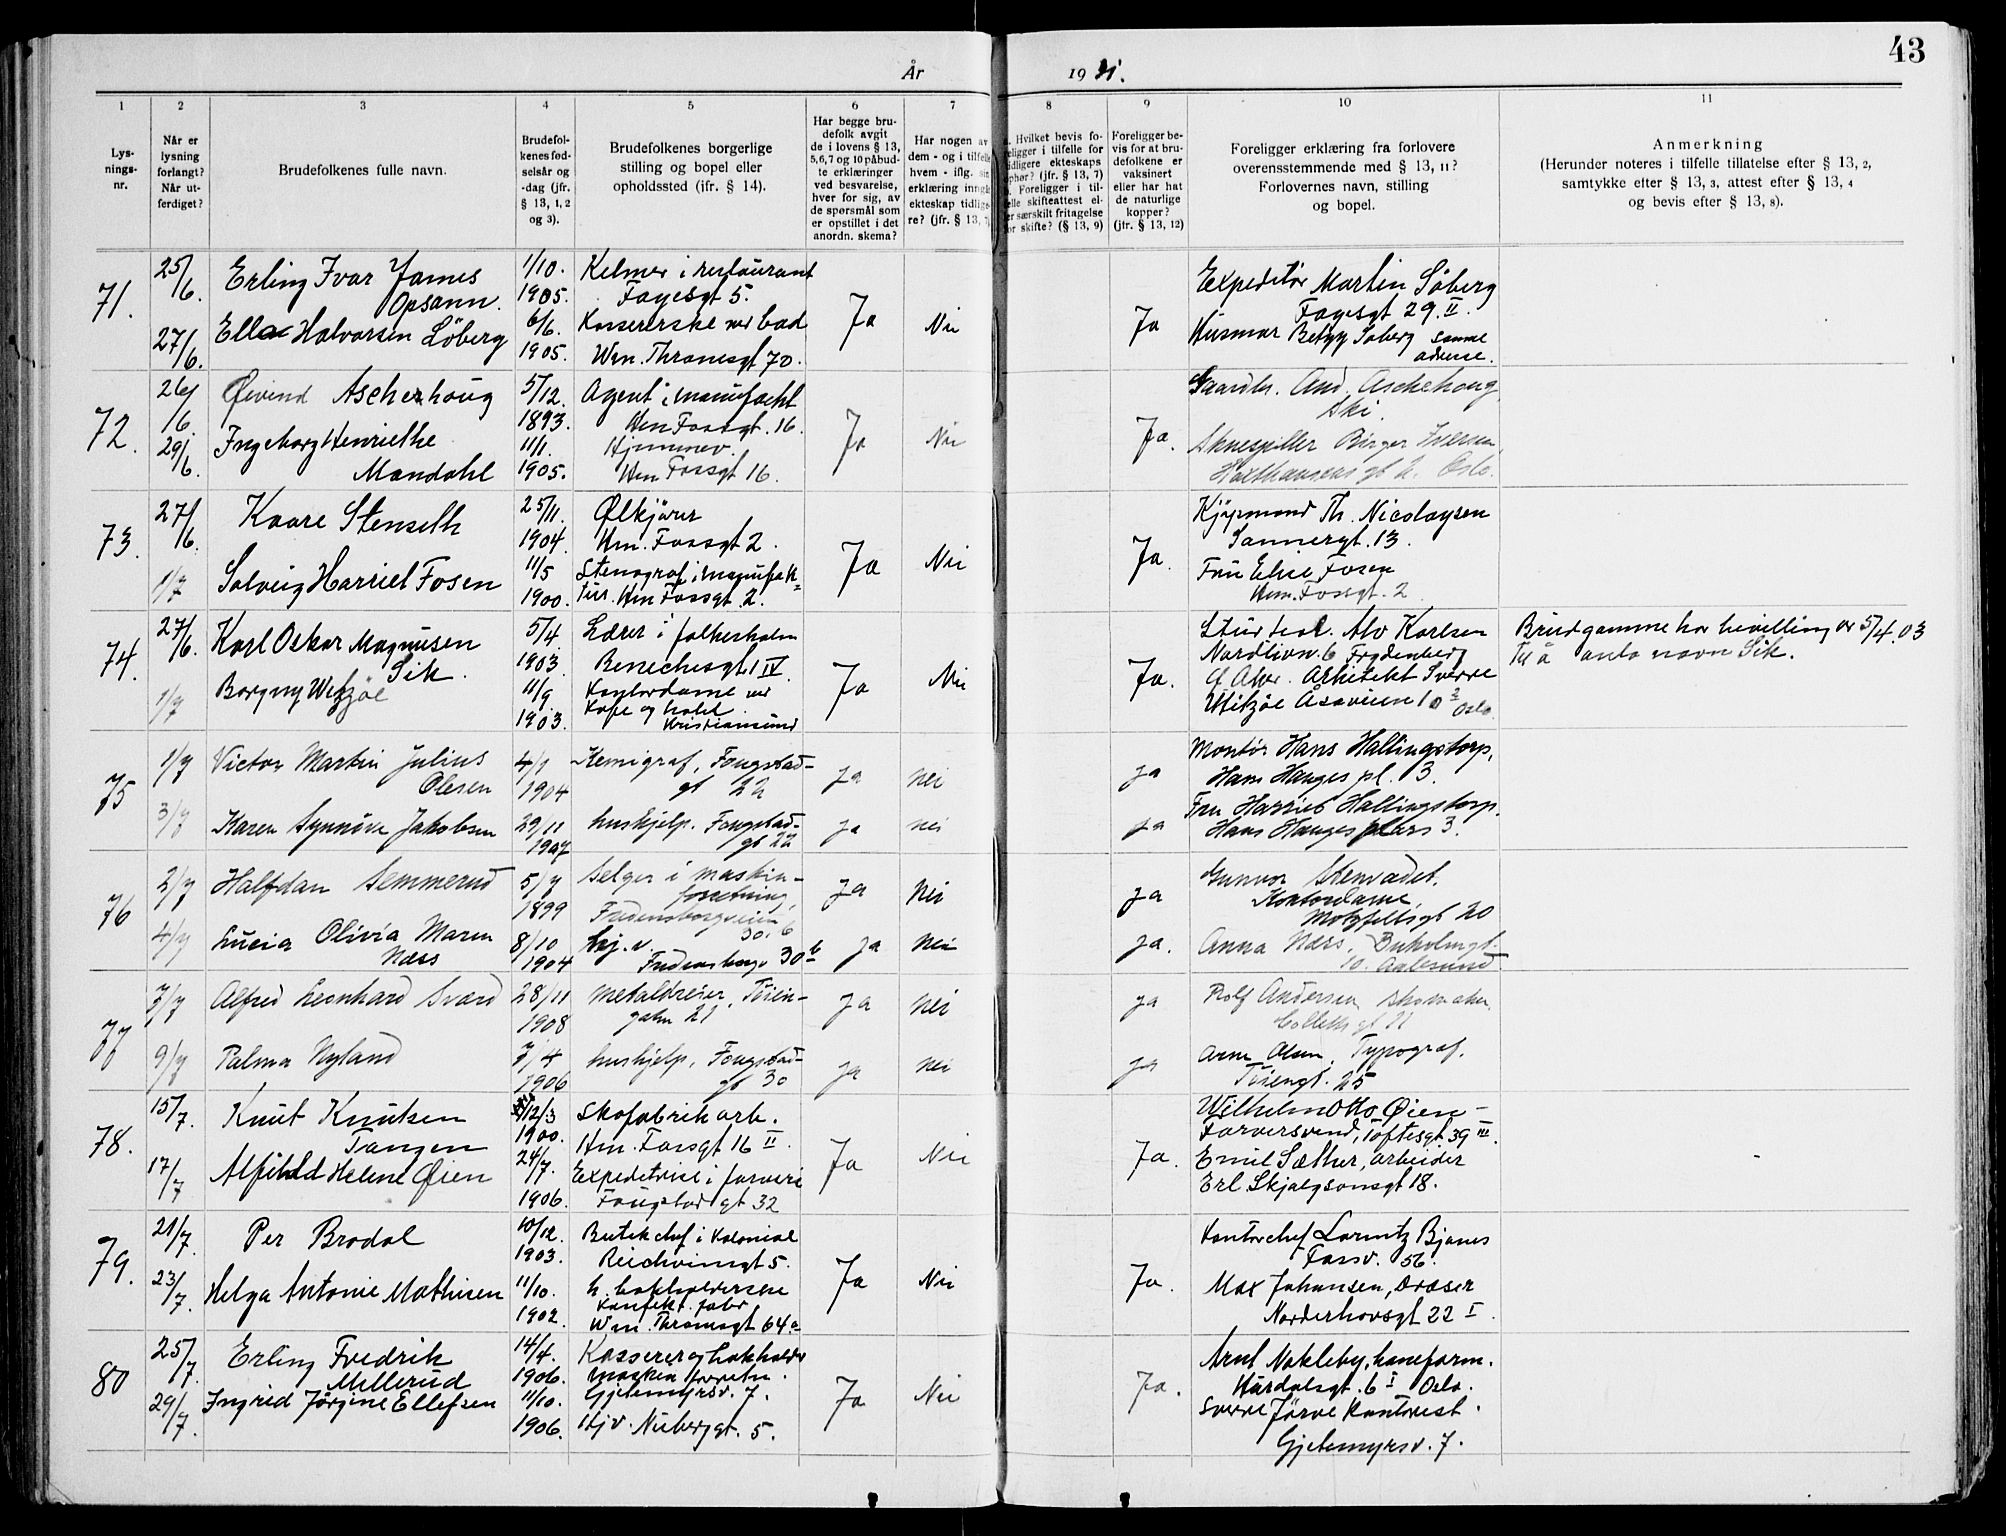 43
År 1931.
1 2 3 4 5 6 7 8 9 10 11
Lys-
nings-
nr.
Når er
lysning
forlangt?
Når ut-
ferdiget?
Brudefolkenes fulle navn.
Brudefol-
kenes fød-
selsår og
-dag (jfr.
§ 13, 1, 2
og 3).
Brudefolkenes borgerlige
stilling og bopel eller
opholdssted (jfr. § 14).
Har begge bru-
defolk avgit
de i lovens § 13,
5, 6, 7 og 10 påbud-
te erklæringer
ved besvarelse,
hver for sig, av
de spørsmål som
er opstillet i det
anordn. skema?
Har nogen av
dem - og i tilfelle
hvem - iflg. sin
erklæring inngåt
ekteskap tidlige-
re? (jfr. § 13, 7)
Hvilket bevis fo-
religger i tilfelle for
tidligere ekteskaps
ophør? (jfr. § 13, 7)
Foreligger i til-
felle skifteattest el-
er særskilt fritagelse
for skifte? (§ 13, 9)
Foreligger be-
vis for at bru-
defolkene er
vaksinert
eller har hat
de naturlige
kopper?
(jfr. § 13, 12)
Foreligger erklæring fra forlovere
overensstemmende med § 13, 11?
Forlovernes navn, stilling
og bopel.
Anmerkning
(Herunder noteres i tilfelle tillatelse efter § 13, 2,
samtykke efter § 13, 3, attest efter § 13, 4
og bevis efter § 13, 8).
71.
25/6.
27/6.
Erling Ivar James
Opsann.
Ella Halvorsen Löberg
1/10.
1905.
6/6.
1905.
Kelner i restaurant
Fagesgt 5.
Kassererske ved bad
Wm. Thranesgt 70.
Ja
Nei
Ja
Expeditör Martin Söberg
Fagesgt 29. II.
Husmor Betzy Söberg samme
adresse.
72.
26/6.
29/6.
Øivind Aschehoug
Ingeborg Henriette
Mandahl
5/12.
1893.
11/1.
1905.
Agent i manufakt
Hm Fossgt. 16.
Hjemmev.
Hm Fossgt 16.
Ja
Nei
Ja.
Gaardbr. And. Aschehoug
Ski.
Skuespiller Birger Iversen
Oslo.
73.
27/6.
1/7
Kaare Stenseth
Solveig Harriet Fosen
25/11.
1904.
11/5
1900.
Ølkjörer
Hm. Fossgt 2.
Stenograf i manufak-
tur. Hm Fossgt. 2.
Ja
Nei
Ja.
Kjöpmand Th. Nicolaysen
Sannergt. 13.
Fru Elise Fosen
Hm. Fossgt. 2
74.
27/6.
1/7
Karl Oskar Magnusen
Sik.
Borgny Witzöe
5/4.
1903.
11/9.
1903.
Lærer i folkeskolen
Benechesgt 1 IV
Kontordame ved
Kafe og hotel
Kristiansund
Ja
Nei
Ja.
Stud. real. Alv Karlsen
Nordlivn. 6 Frydenberg
Ø Aker. Arkitekt Sverre
Witzöe Åsaveien 10 Oslo
Brudgomme har bevilling av 5/4. 03
til å anta navn Sik.
75
1/7
3/7
Victor Martin Julius
Olesen
Karen Synnöve Jakobsen
4/1
1904
29/11
1907
Kemigraf, Fougstad-
gt 22
huskjelp. Fougstad-
gt 22
ja
nei
ja
nei
ja
ja
Montör Hans Hallingstorp,
Hans Hauges pl. 3.
Fru Harriet Hallingstorp.
Hans Hauges plass 3.
76
2/7
4/7
Halfdan Semmerud
Lucia Olivia Maren
Næss
5/7
1899
8/10
1904
selger i maskin-
forretning,
Fredensborgveien
30. 6
hj. v.
Fredensborgv 30 b
ja
nei
ja
nei
ja
ja.
Gunvor Stenvadet.
Kontordame,
Motzfeltsgt 20
Anna Næss,
10. Aalesund
77
7/7
9/7
Alfred Leonhard Svärd
Palma Nyland
28/11
1908
7/4
1906
metaldreier, Töien-
gatn 21
huskjelp, Fougstad-
gt 30
ja
nei
ja
nei
ja
ja
Rolf Andersen skomaker
Colletts gt 11
Arne Olsen, Typograf,
Töiengt. 25
78.
15/7.
17/7
Knut Knutsen
Tangen
Alfhild Helene Øien
12/3
1900.
24/7.
1906.
Skofabrikarb.
Hm. Fossgt 16 II.
Expeditrice i farveri
Fougstad gt 32
Ja
Nei
Ja.
Wilhelm Otto Øien -
Farversvend, Toftesgt 39 III.
Emil Sæther, arbeider
Erl. Skjalgsonsgt 18.
79.
21/7.
23/7.
Per Brodal
Helga Antonie Mathisen
10/12.
1903.
11/10.
1902.
Butikchef i Kolonial
Reichweinsgt 5.
h. bokholderske
Konfekt. fabr
Wm. Thranesgt 64 a
Ja
Nei
Ja.
Kontorchef Lorentz Bjanes
Fossv. 56.
Max Johansen, dreier
Norderhovsgt 22 I.
80
25/7.
29/7.
Erling Fredrik
Mellerud
Ingrid Jörgine Ellefsen
14/4.
1906.
11/10.
1906.
Kasserer og bokholder
maskin forretn.
Gjetemyrsv. 7.
Hjv. Nubergt. 5.
Ja
Nei
Ja.
Arnt Nokleby,
Hurdalsgt. 6 I Oslo.
Sverre Jörve Kontorist.
Gjetemyrsv. 7.